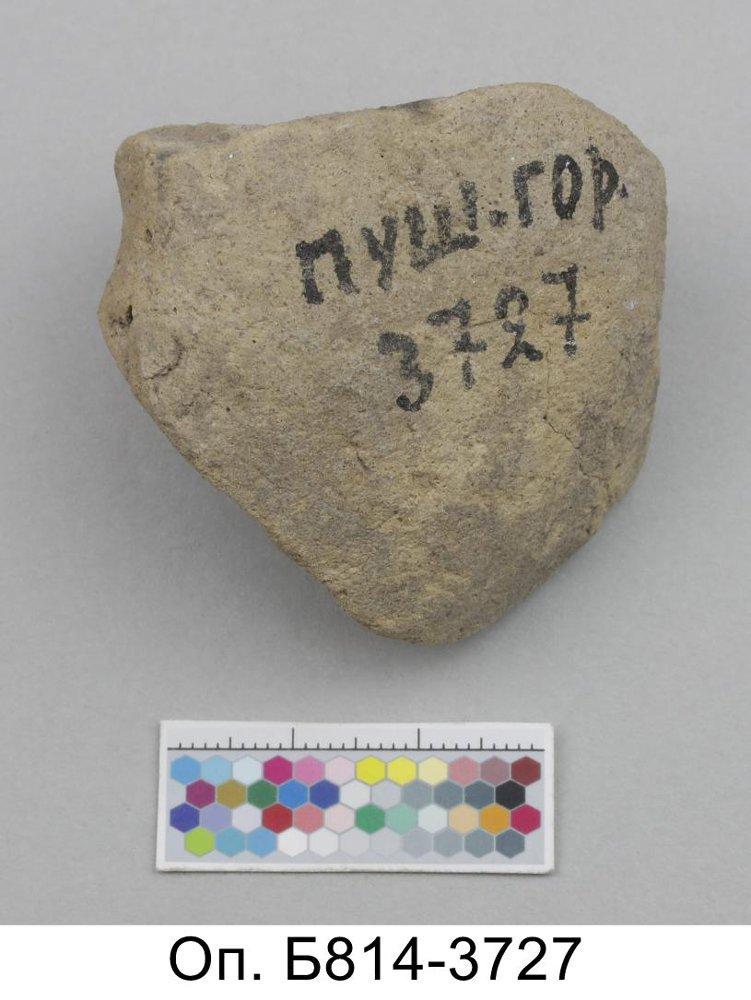 пуш.гор.
3727
Оп. Б814-3727